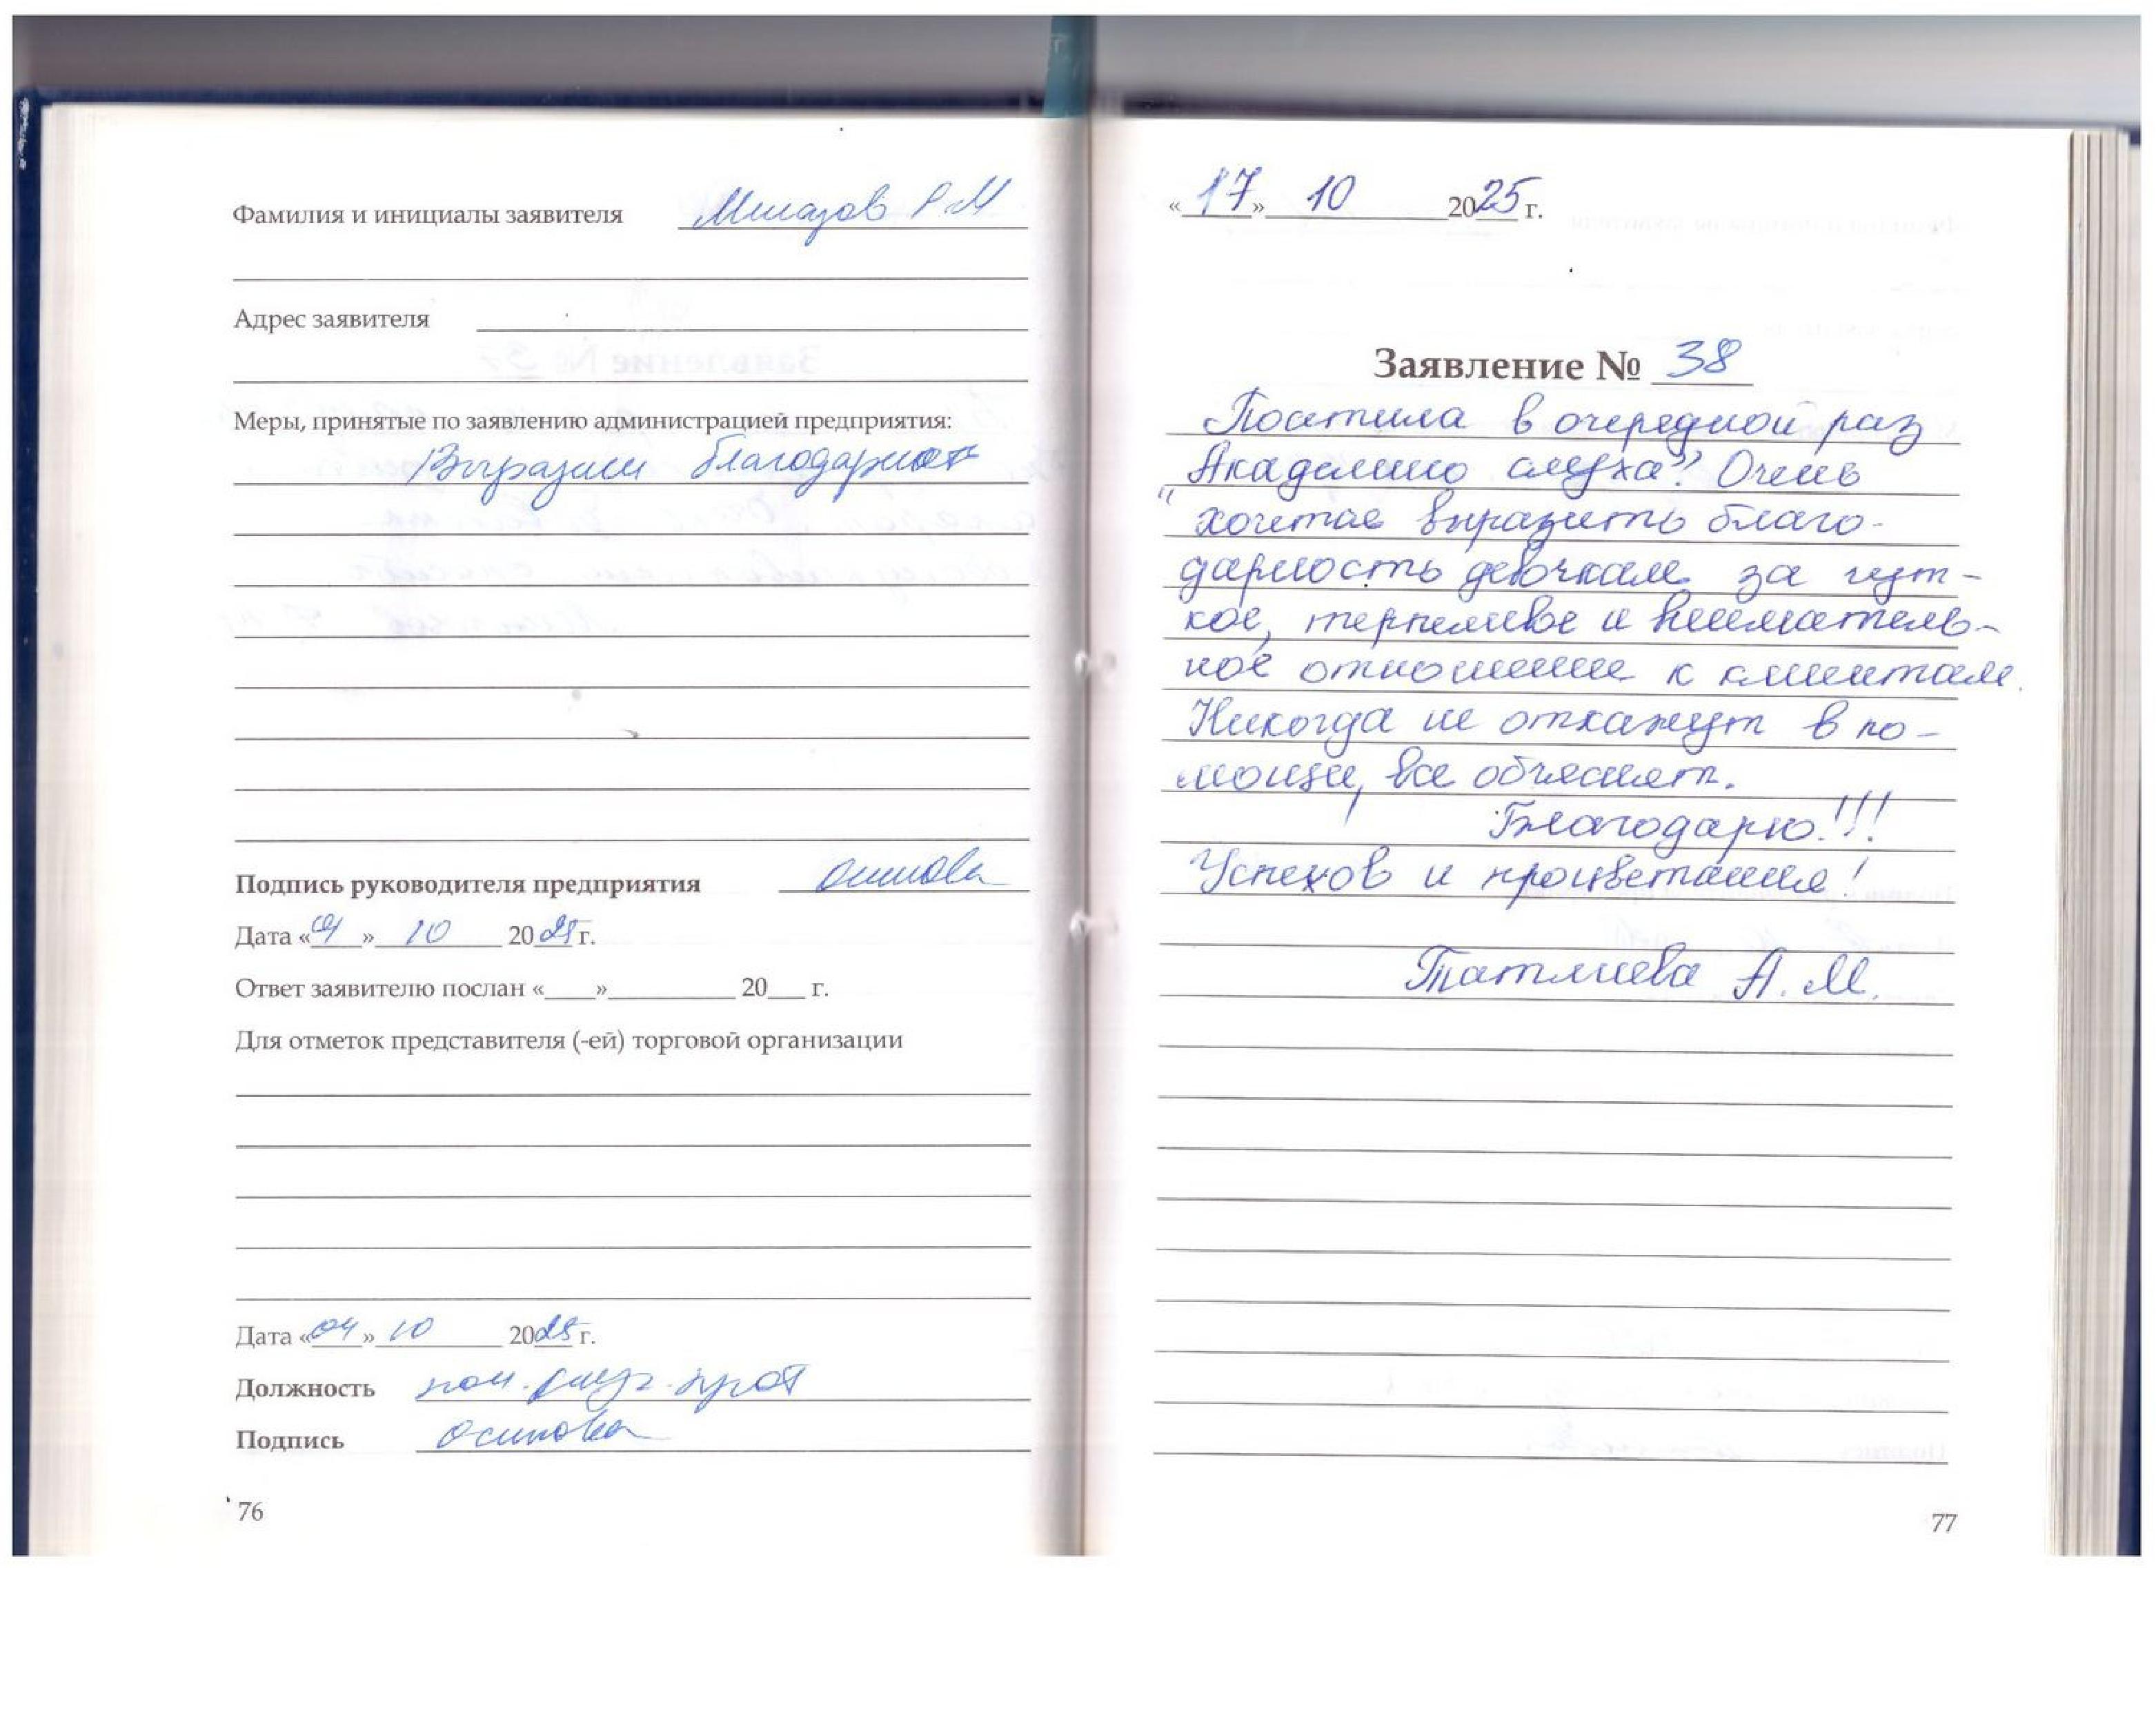 Фамилия и инициалы заявителя Миназов Р М
Адрес заявителя
Меры, принятые по заявлению администрацией предприятия:
Выразили благодарност
Подпись руководителя предприятия Осипова
Дата «04» 10 2025 г.
Ответ заявителю послан «___»__________ 20___ г.
Для отметок представителя (-ей) торговой организации
Дата «04» 10 2025 г.
Должность
Подпись Осипова
76
«17» 10 2025 г.
Заявление № 38
Посетила в очередной раз
"Академию слуха". Очень
хочется выразить благо-
дарность девочкам за чут-
кое, терпеливое и вниматель-
ное отношение к клиентам.
Никогда не откажут в по-
мощи, все объяснят.
Благодарю!!!
Успехов и процветания!
Татлиева А. М.
77